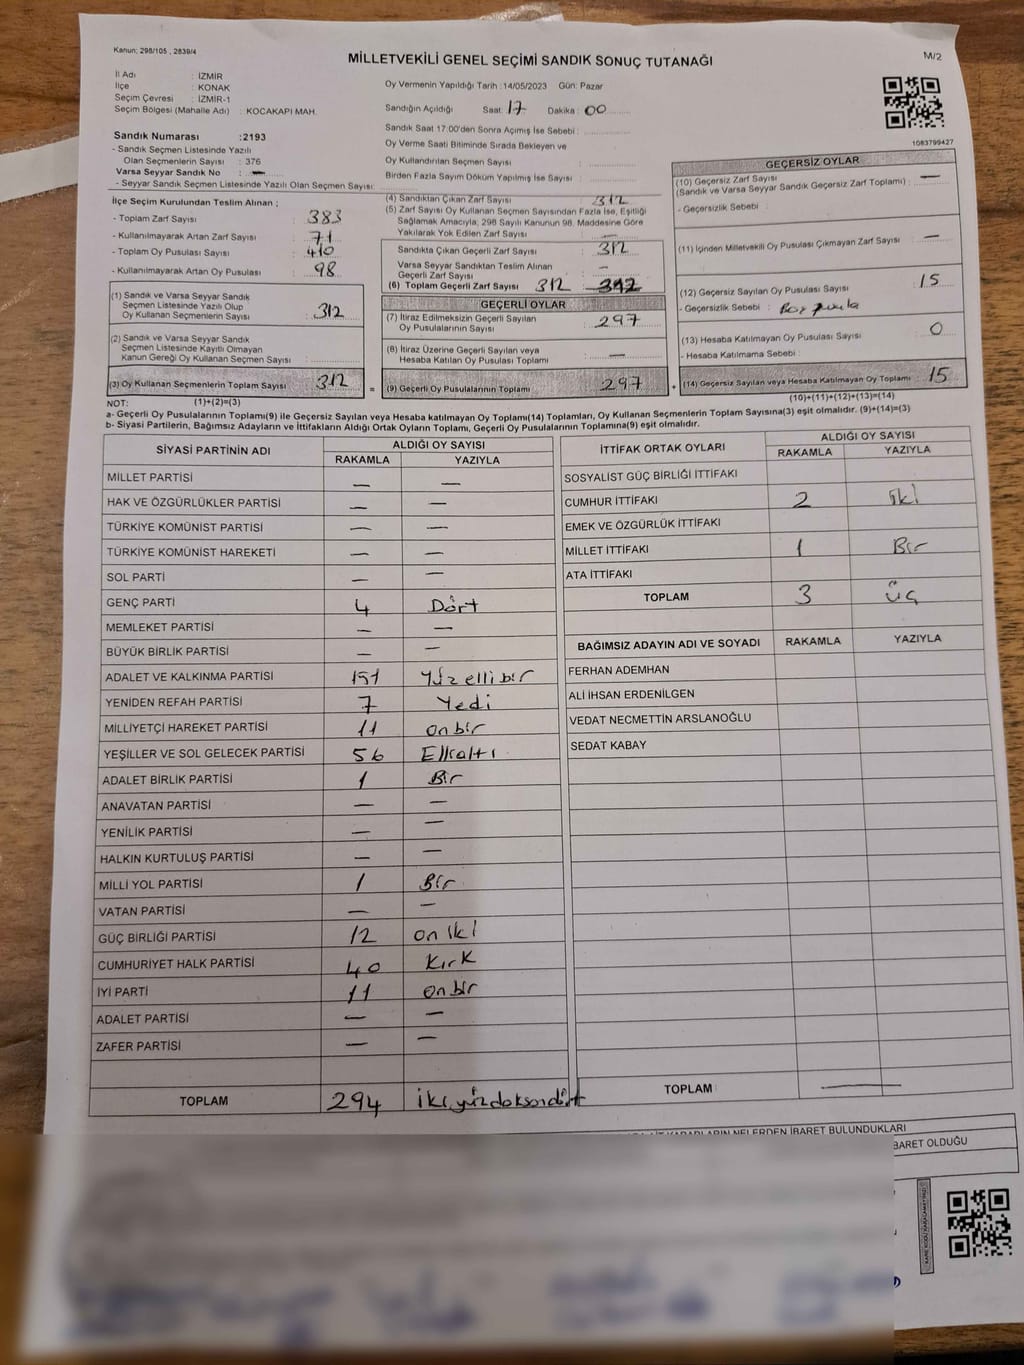 Kanun; 298/105 , 2839/4
MİLLETVEKİLİ GENEL SEÇİMİ SANDIK SONUÇ TUTANAĞI
M/2
İl Adı : İZMİR
İlçe : KONAK
Seçim Çevresi : İZMİR-1
Seçim Bölgesi (Mahalle Adı) : KOCAKAPI MAH.
Sandık Numarası :2193
- Sandık Seçmen Listesinde Yazılı
Olan Seçmenlerin Sayısı : 376
Varsa Seyyar Sandık No : —
- Seyyar Sandık Seçmen Listesinde Yazılı Olan Seçmen Sayısı:
Oy Vermenin Yapıldığı Tarih :14/05/2023 Gün: Pazar
Sandığın Açıldığı Saat: 17 Dakika : 00
Sandık Saat 17:00'den Sonra Açımış İse Sebebi :
Oy Verme Saati Bitiminde Sırada Bekleyen ve
Oy Kullandırılan Seçmen Sayısı :
Birden Fazla Sayım Döküm Yapılmış İse Sayısı :
1083799427
İlçe Seçim Kurulundan Teslim Alınan ;
- Toplam Zarf Sayısı : 383
- Kullanılmayarak Artan Zarf Sayısı : 71
- Toplam Oy Pusulası Sayısı : 410
- Kullanılmayarak Artan Oy Pusulası : 98
(1) Sandık ve Varsa Seyyar Sandık
Seçmen Listesinde Yazılı Olup
Oy Kullanan Seçmenlerin Sayısı : 312
(2) Sandık ve Varsa Seyyar Sandık
Seçmen Listesinde Kayıtlı Olmayan
Kanun Gereği Oy Kullanan Seçmen Sayısı :
(3) Oy Kullanan Seçmenlerin Toplam Sayısı : 312
(4) Sandıktan Çıkan Zarf Sayısı : 312
(5) Zarf Sayısı Oy Kullanan Seçmen Sayısından Fazla İse, Eşitliği
Sağlamak Amacıyla, 298 Sayılı Kanunun 98. Maddesine Göre
Yakılarak Yok Edilen Zarf Sayısı : —
Sandıkta Çıkan Geçerli Zarf Sayısı : 312
Varsa Seyyar Sandıktan Teslim Alınan
Geçerli Zarf Sayısı : —
(6) Toplam Geçerli Zarf Sayısı : 312
GEÇERLİ OYLAR
(7) İtiraz Edilmeksizin Geçerli Sayılan
Oy Pusulalarının Sayısı : 297
(8) İtiraz Üzerine Geçerli Sayılan veya
Hesaba Katılan Oy Pusulası Toplamı : —
= (9) Geçerli Oy Pusulalarının Toplamı : 297
GEÇERSİZ OYLAR
(10) Geçersiz Zarf Sayısı
(Sandık ve Varsa Seyyar Sandık Geçersiz Zarf Toplamı) : —
- Geçersizlik Sebebi :
(11) İçinden Milletvekili Oy Pusulası Çıkmayan Zarf Sayısı : —
(12) Geçersiz Sayılan Oy Pusulası Sayısı : 15
- Geçersizlik Sebebi :
(13) Hesaba Katılmayan Oy Pusulası Sayısı : 0
- Hesaba Katılmama Sebebi :
+ (14) Geçersiz Sayılan veya Hesaba Katılmayan Oy Toplamı : 15
NOT: (1)+(2)=(3)
(10)+(11)+(12)+(13)=(14)
a- Geçerli Oy Pusulalarının Toplamı(9) ile Geçersiz Sayılan veya Hesaba katılmayan Oy Toplamı(14) Toplamları, Oy Kullanan Seçmenlerin Toplam Sayısına(3) eşit olmalıdır. (9)+(14)=(3)
b- Siyasi Partilerin, Bağımsız Adayların ve İttifakların Aldığı Ortak Oyların Toplamı, Geçerli Oy Pusulalarının Toplamına(9) eşit olmalıdır.
SİYASİ PARTİNİN ADI ALDIĞI OY SAYISI
RAKAMLA YAZIYLA
MİLLET PARTİSİ — —
HAK VE ÖZGÜRLÜKLER PARTİSİ — —
TÜRKİYE KOMÜNİST PARTİSİ — —
TÜRKİYE KOMÜNİST HAREKETİ — —
SOL PARTİ — —
GENÇ PARTİ 4 Dört
MEMLEKET PARTİSİ — —
BÜYÜK BİRLİK PARTİSİ — —
ADALET VE KALKINMA PARTİSİ 151 Yüzellibir
YENİDEN REFAH PARTİSİ 7 Yedi
MİLLİYETÇİ HAREKET PARTİSİ 11 onbir
YEŞİLLER VE SOL GELECEK PARTİSİ 56 Ellialtı
ADALET BİRLİK PARTİSİ 1 Bir
ANAVATAN PARTİSİ — —
YENİLİK PARTİSİ — —
HALKIN KURTULUŞ PARTİSİ — —
MİLLİ YOL PARTİSİ 1 Bir
VATAN PARTİSİ — —
GÜÇ BİRLİĞİ PARTİSİ 12 on iki
CUMHURİYET HALK PARTİSİ 40 Kırk
İYİ PARTİ 11 onbir
ADALET PARTİSİ — —
ZAFER PARTİSİ — —
TOPLAM 294 ikiyüzdoksandört
İTTİFAK ORTAK OYLARI ALDIĞI OY SAYISI
RAKAMLA YAZIYLA
SOSYALİST GÜÇ BİRLİĞİ İTTİFAKI
CUMHUR İTTİFAKI 2 iki
EMEK VE ÖZGÜRLÜK İTTİFAKI
MİLLET İTTİFAKI 1 Bir
ATA İTTİFAKI
TOPLAM 3 üç
BAĞIMSIZ ADAYIN ADI VE SOYADI RAKAMLA YAZIYLA
FERHAN ADEMHAN
ALİ İHSAN ERDENİLGEN
VEDAT NECMETTİN ARSLANOĞLU
SEDAT KABAY
TOPLAM —
NELERDEN İBARET BULUNDUKLARI
BARET OLDUĞU